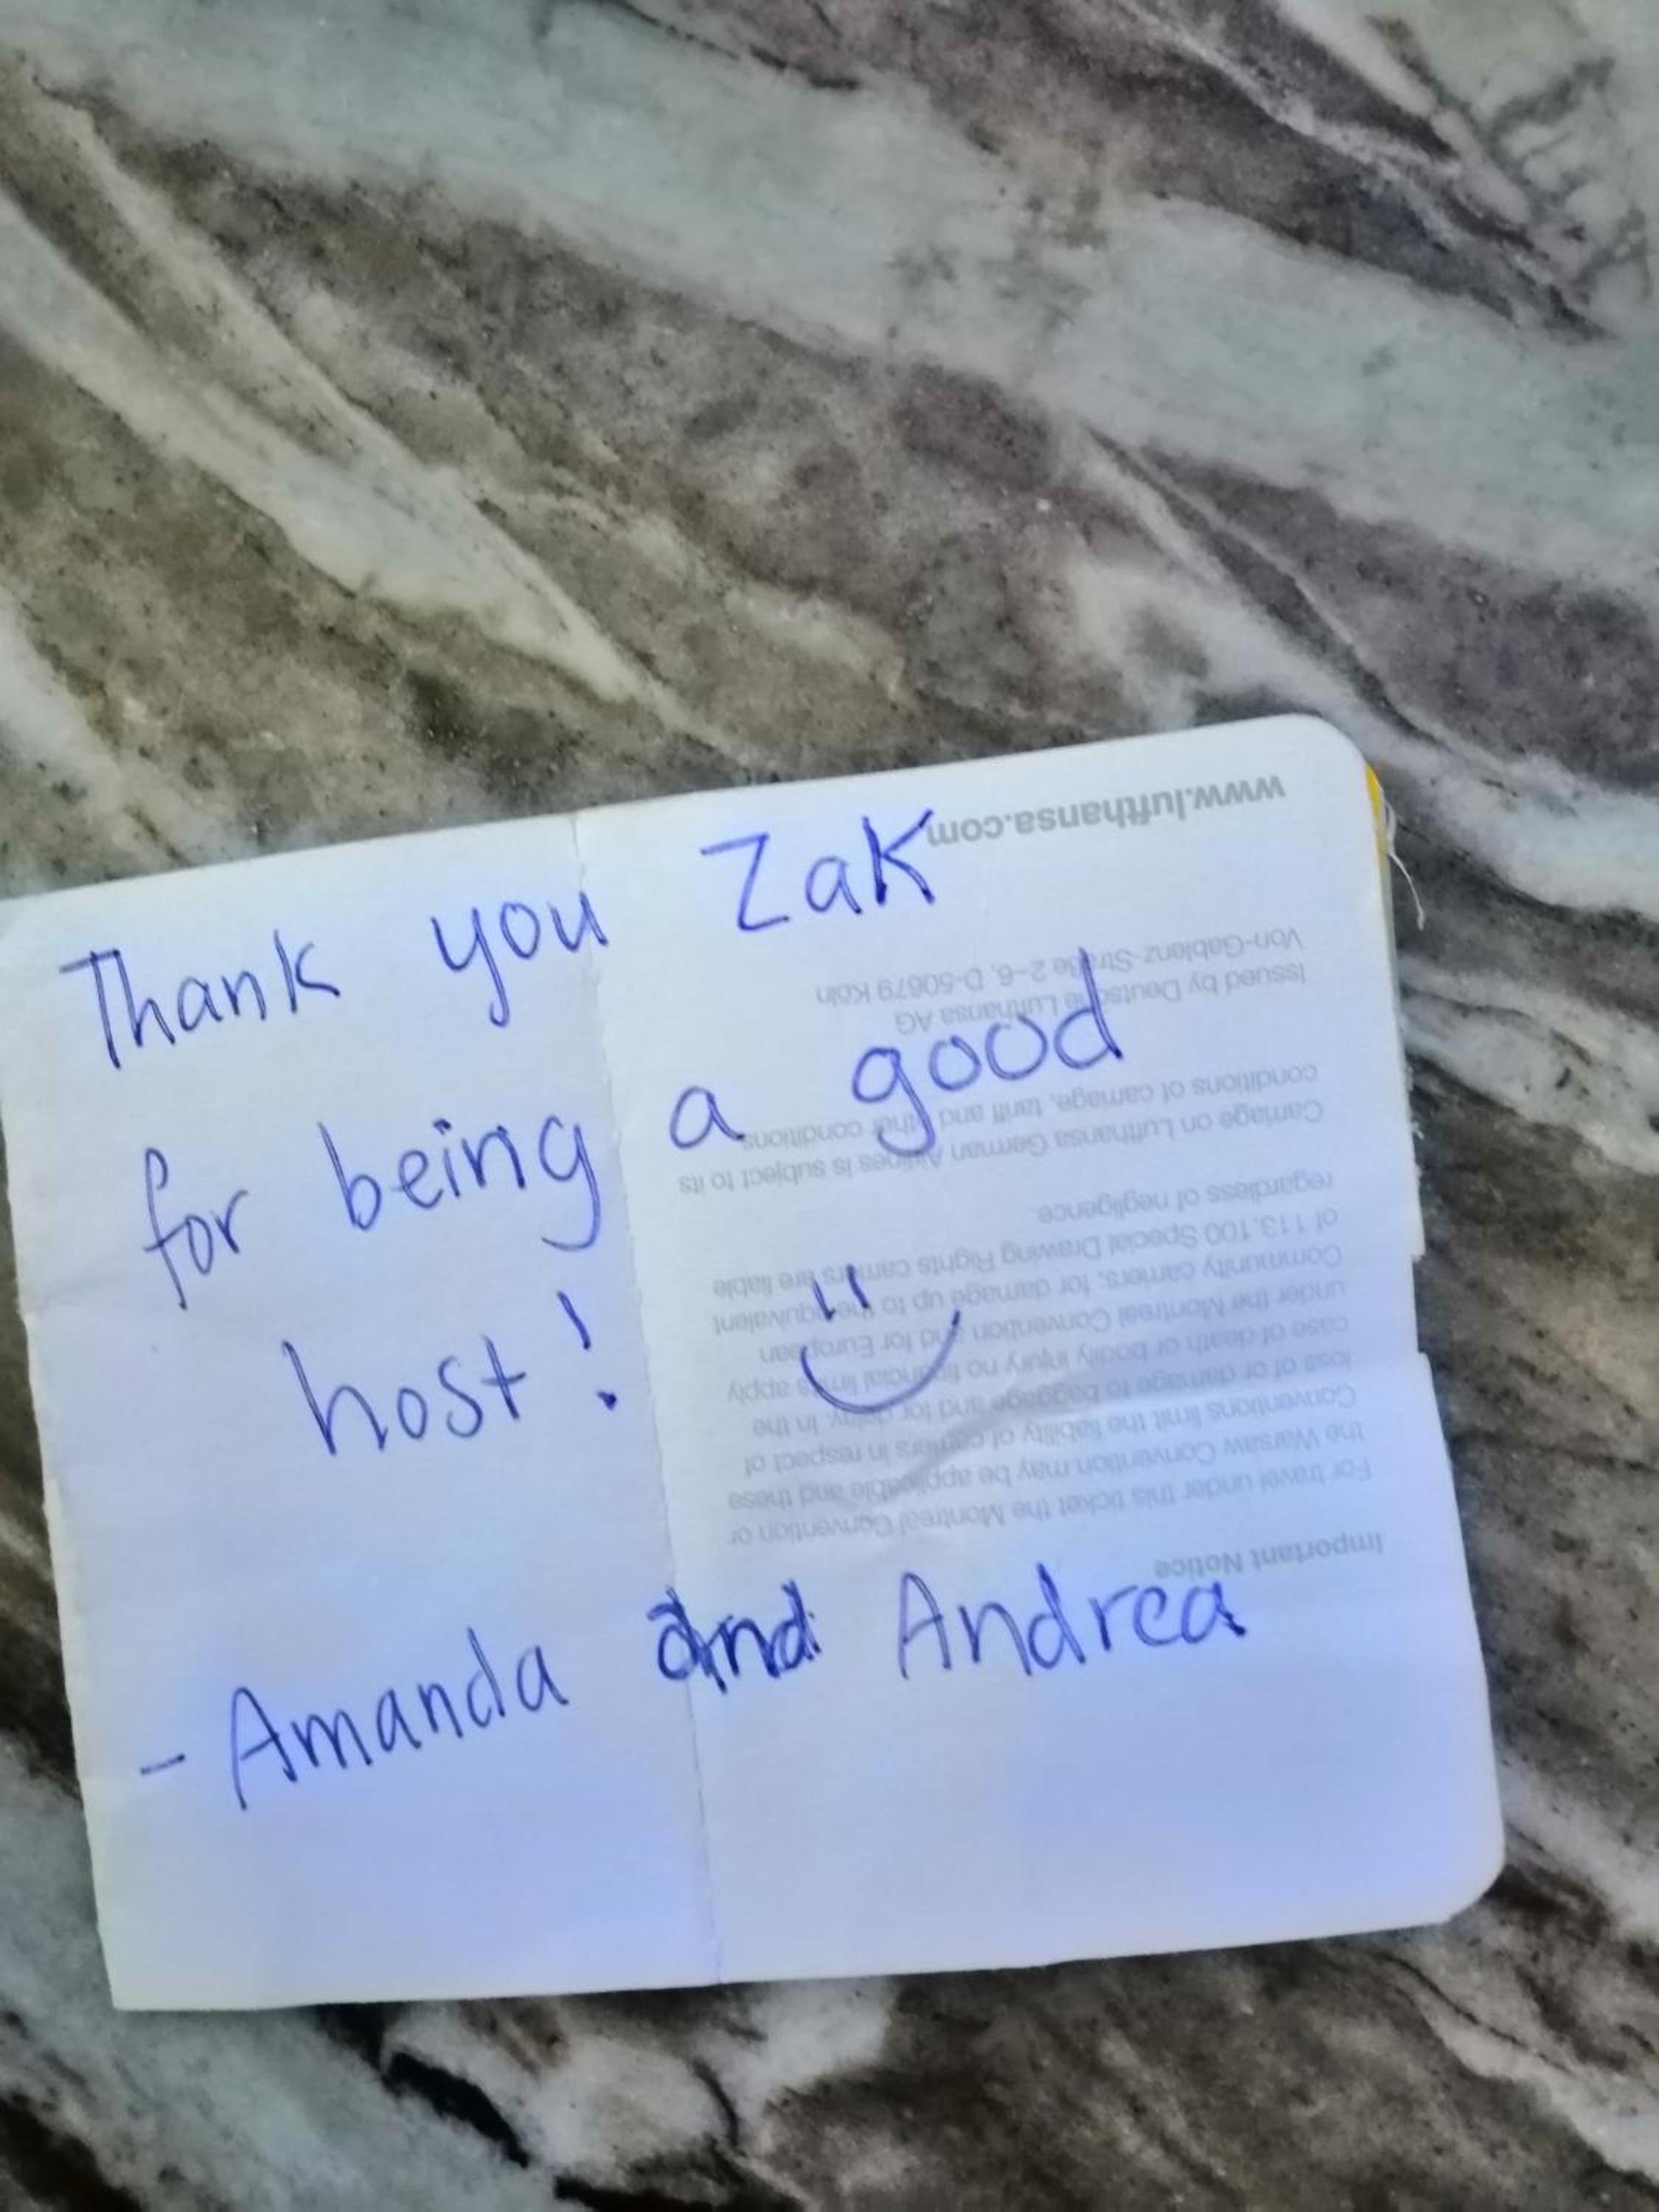 Thank you Zak
for being a good
host!
- Amanda and Andrea
Important Notice
For travel under this ticket the Montreal Convention or
the Warsaw Convention may be applicable and these
Conventions limit the liability of carriers in respect of
loss of or damage to baggage and for delay. In the
case of death or bodily injury no financial limits apply
under the Montreal Convention and for European
Community carriers; for damage up to the equivalent
of 113.100 Special Drawing Rights carriers are liable
regardless of negligence.
Carriage on Lufthansa German Airlines is subject to its
conditions of carriage, tariff and other conditions.
Issued by Deutsche Lufthansa AG
Von-Gablenz-Straße 2-6, D-50679 Köln
www.lufthansa.com